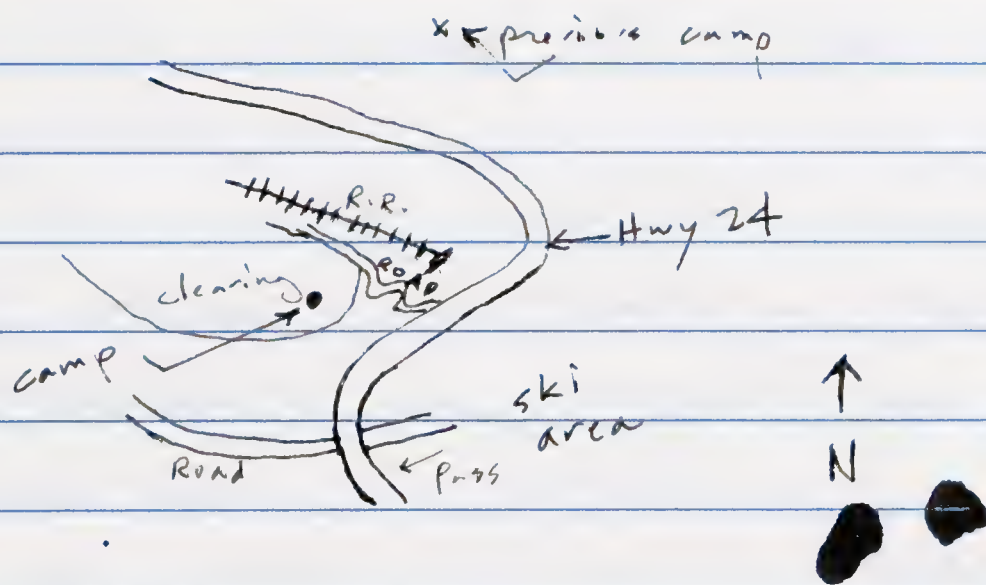 x previous camp
R.R.
Hwy 24
clearing
camp
ski
area
Road
Pass
N